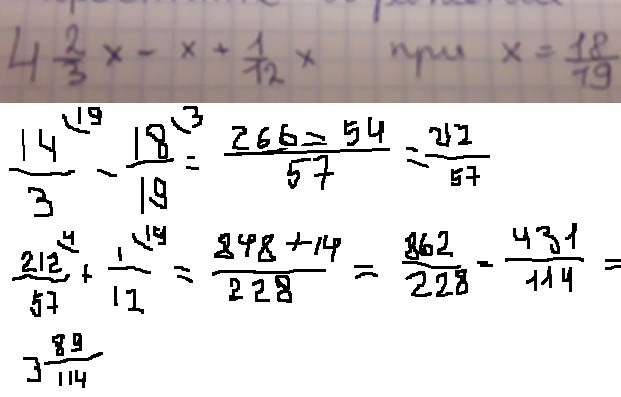 4 2/3 x - x + 1/12 x при x = 18/19
14/3 ^19 - 18/19 ^3 = 266 = 54/57 = 212/57
212/57 ^4 + 1/12 ^19 = 848 + 14/228 = 862/228 = 431/114 =
3 89/114